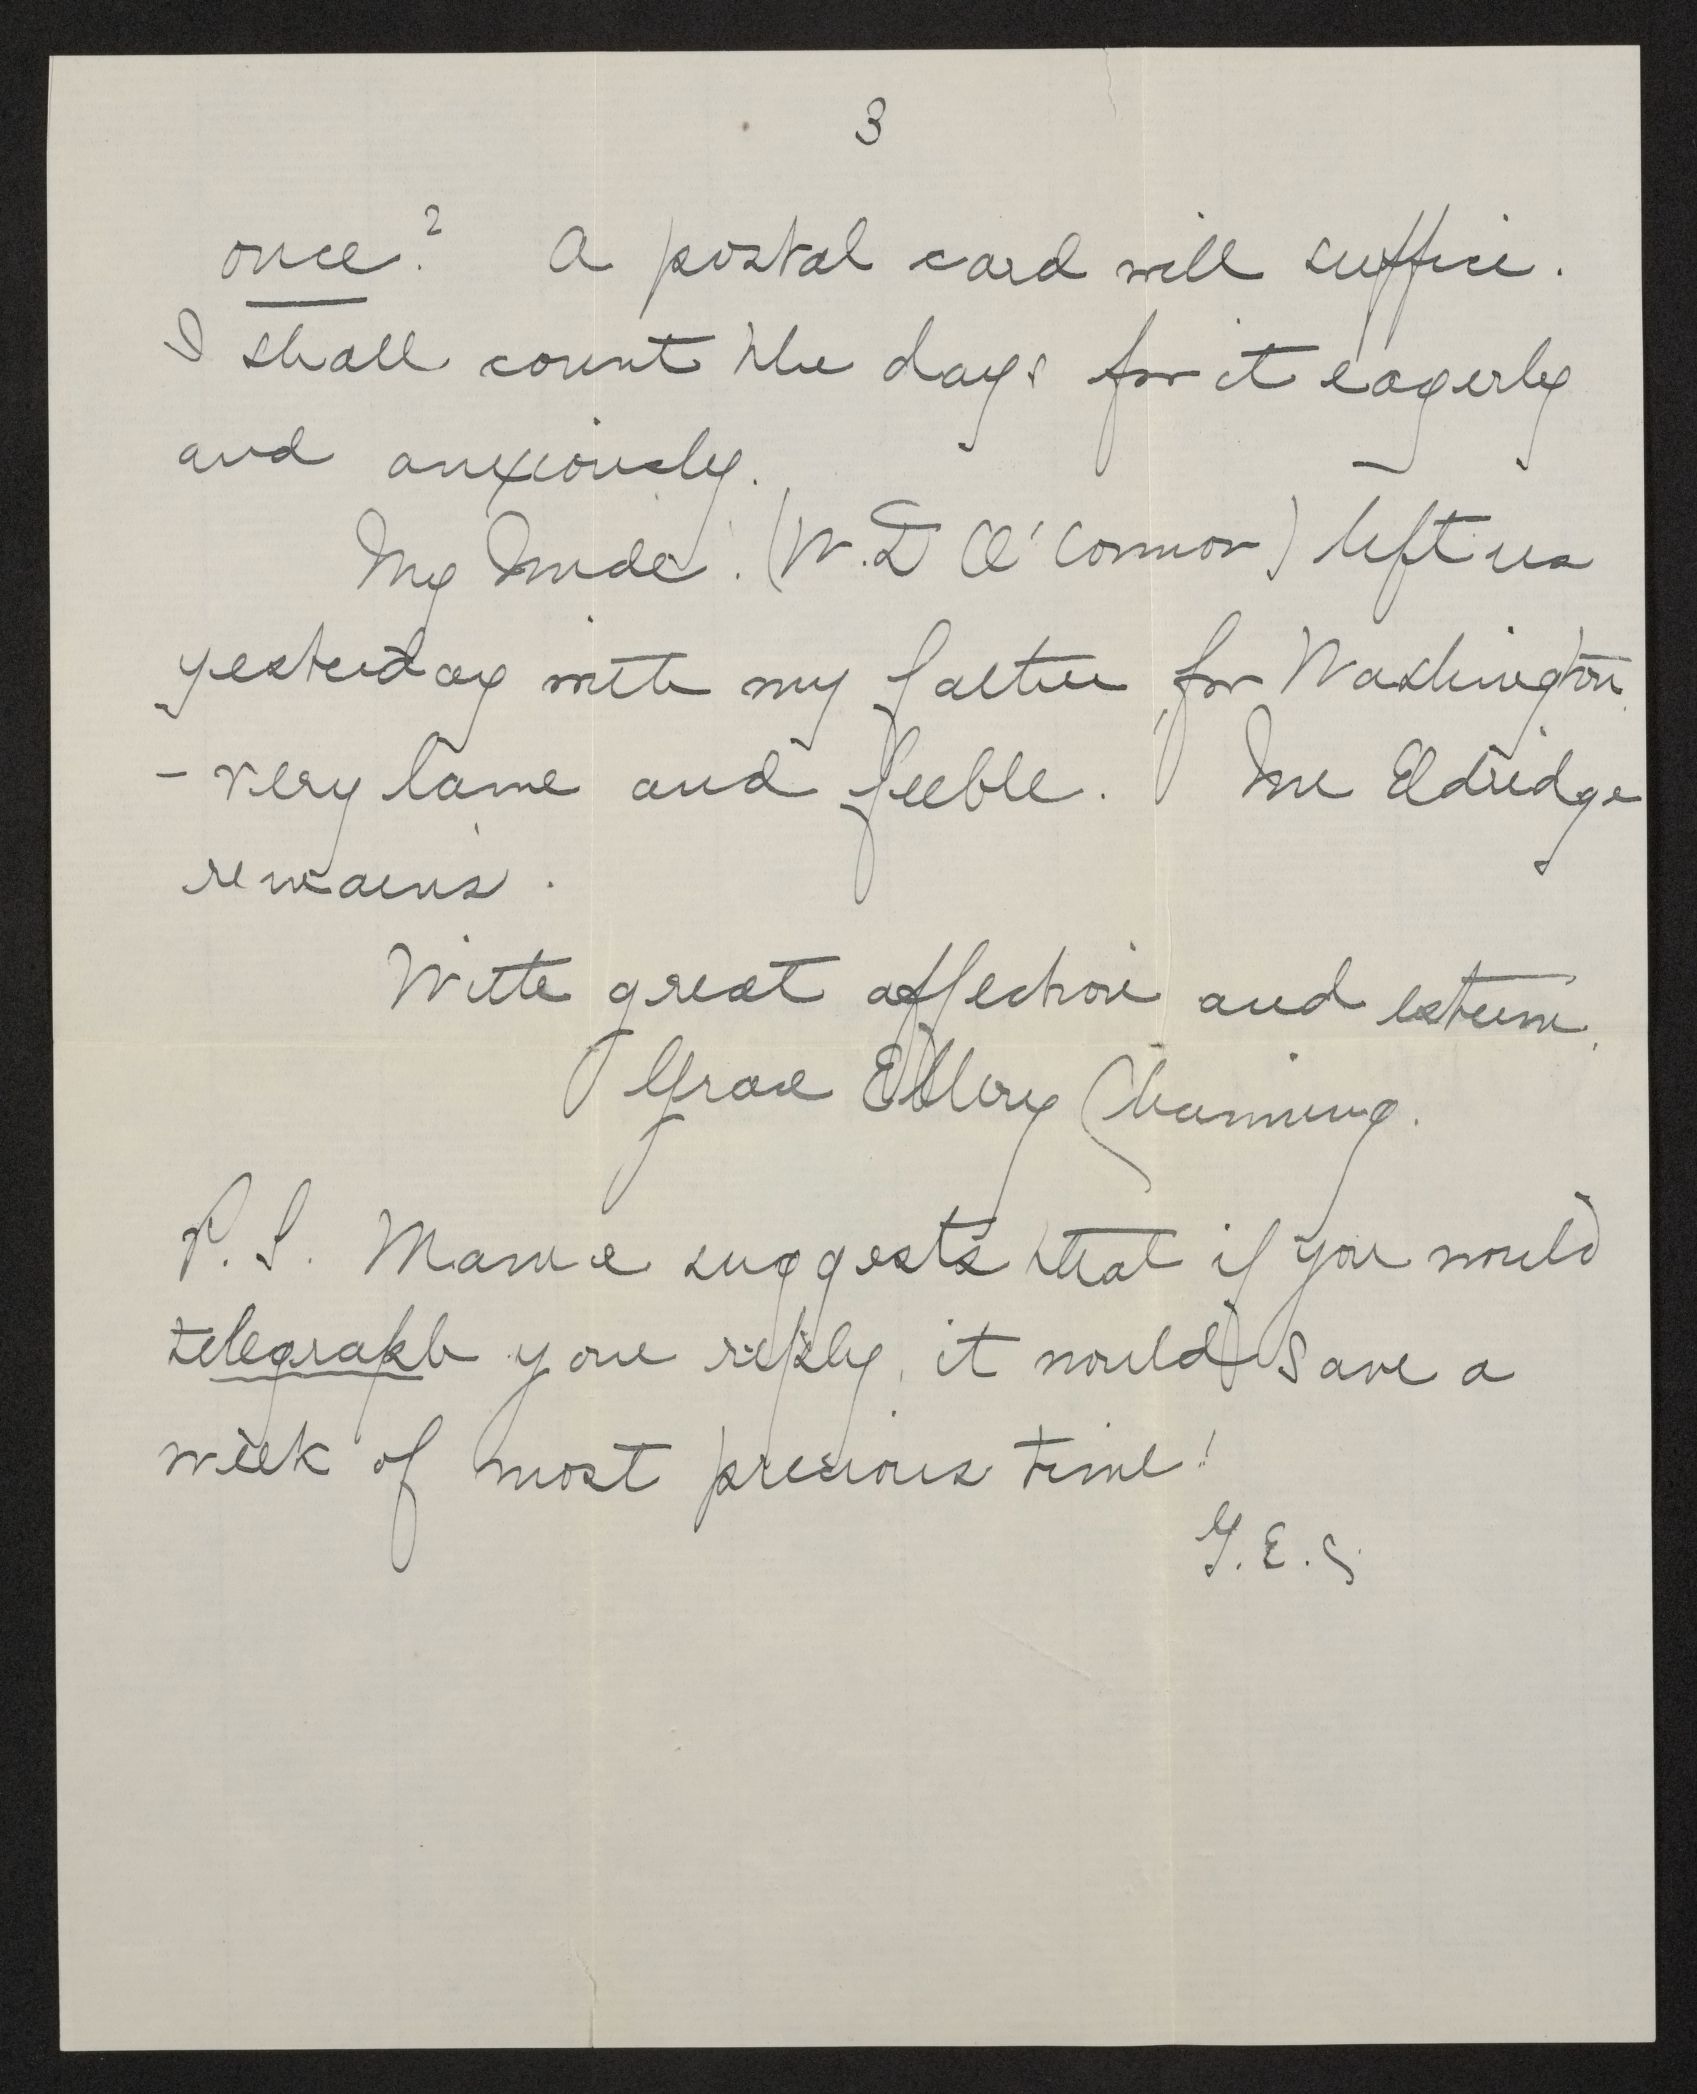 3
once? A postal card will suffice.
I shall count the days for it eagerly
and anxiously.
My Uncle. (W. D O'Connor) left us
yesterday with my father for Washington,
- very lame and feeble. Mr Eldridge
remains.
With great affection and esteem,
Grace Ellery Channing.
P. S. Mama suggests that if you would
telegraph your reply, it would save a
week of most precious time!
G. E. C.